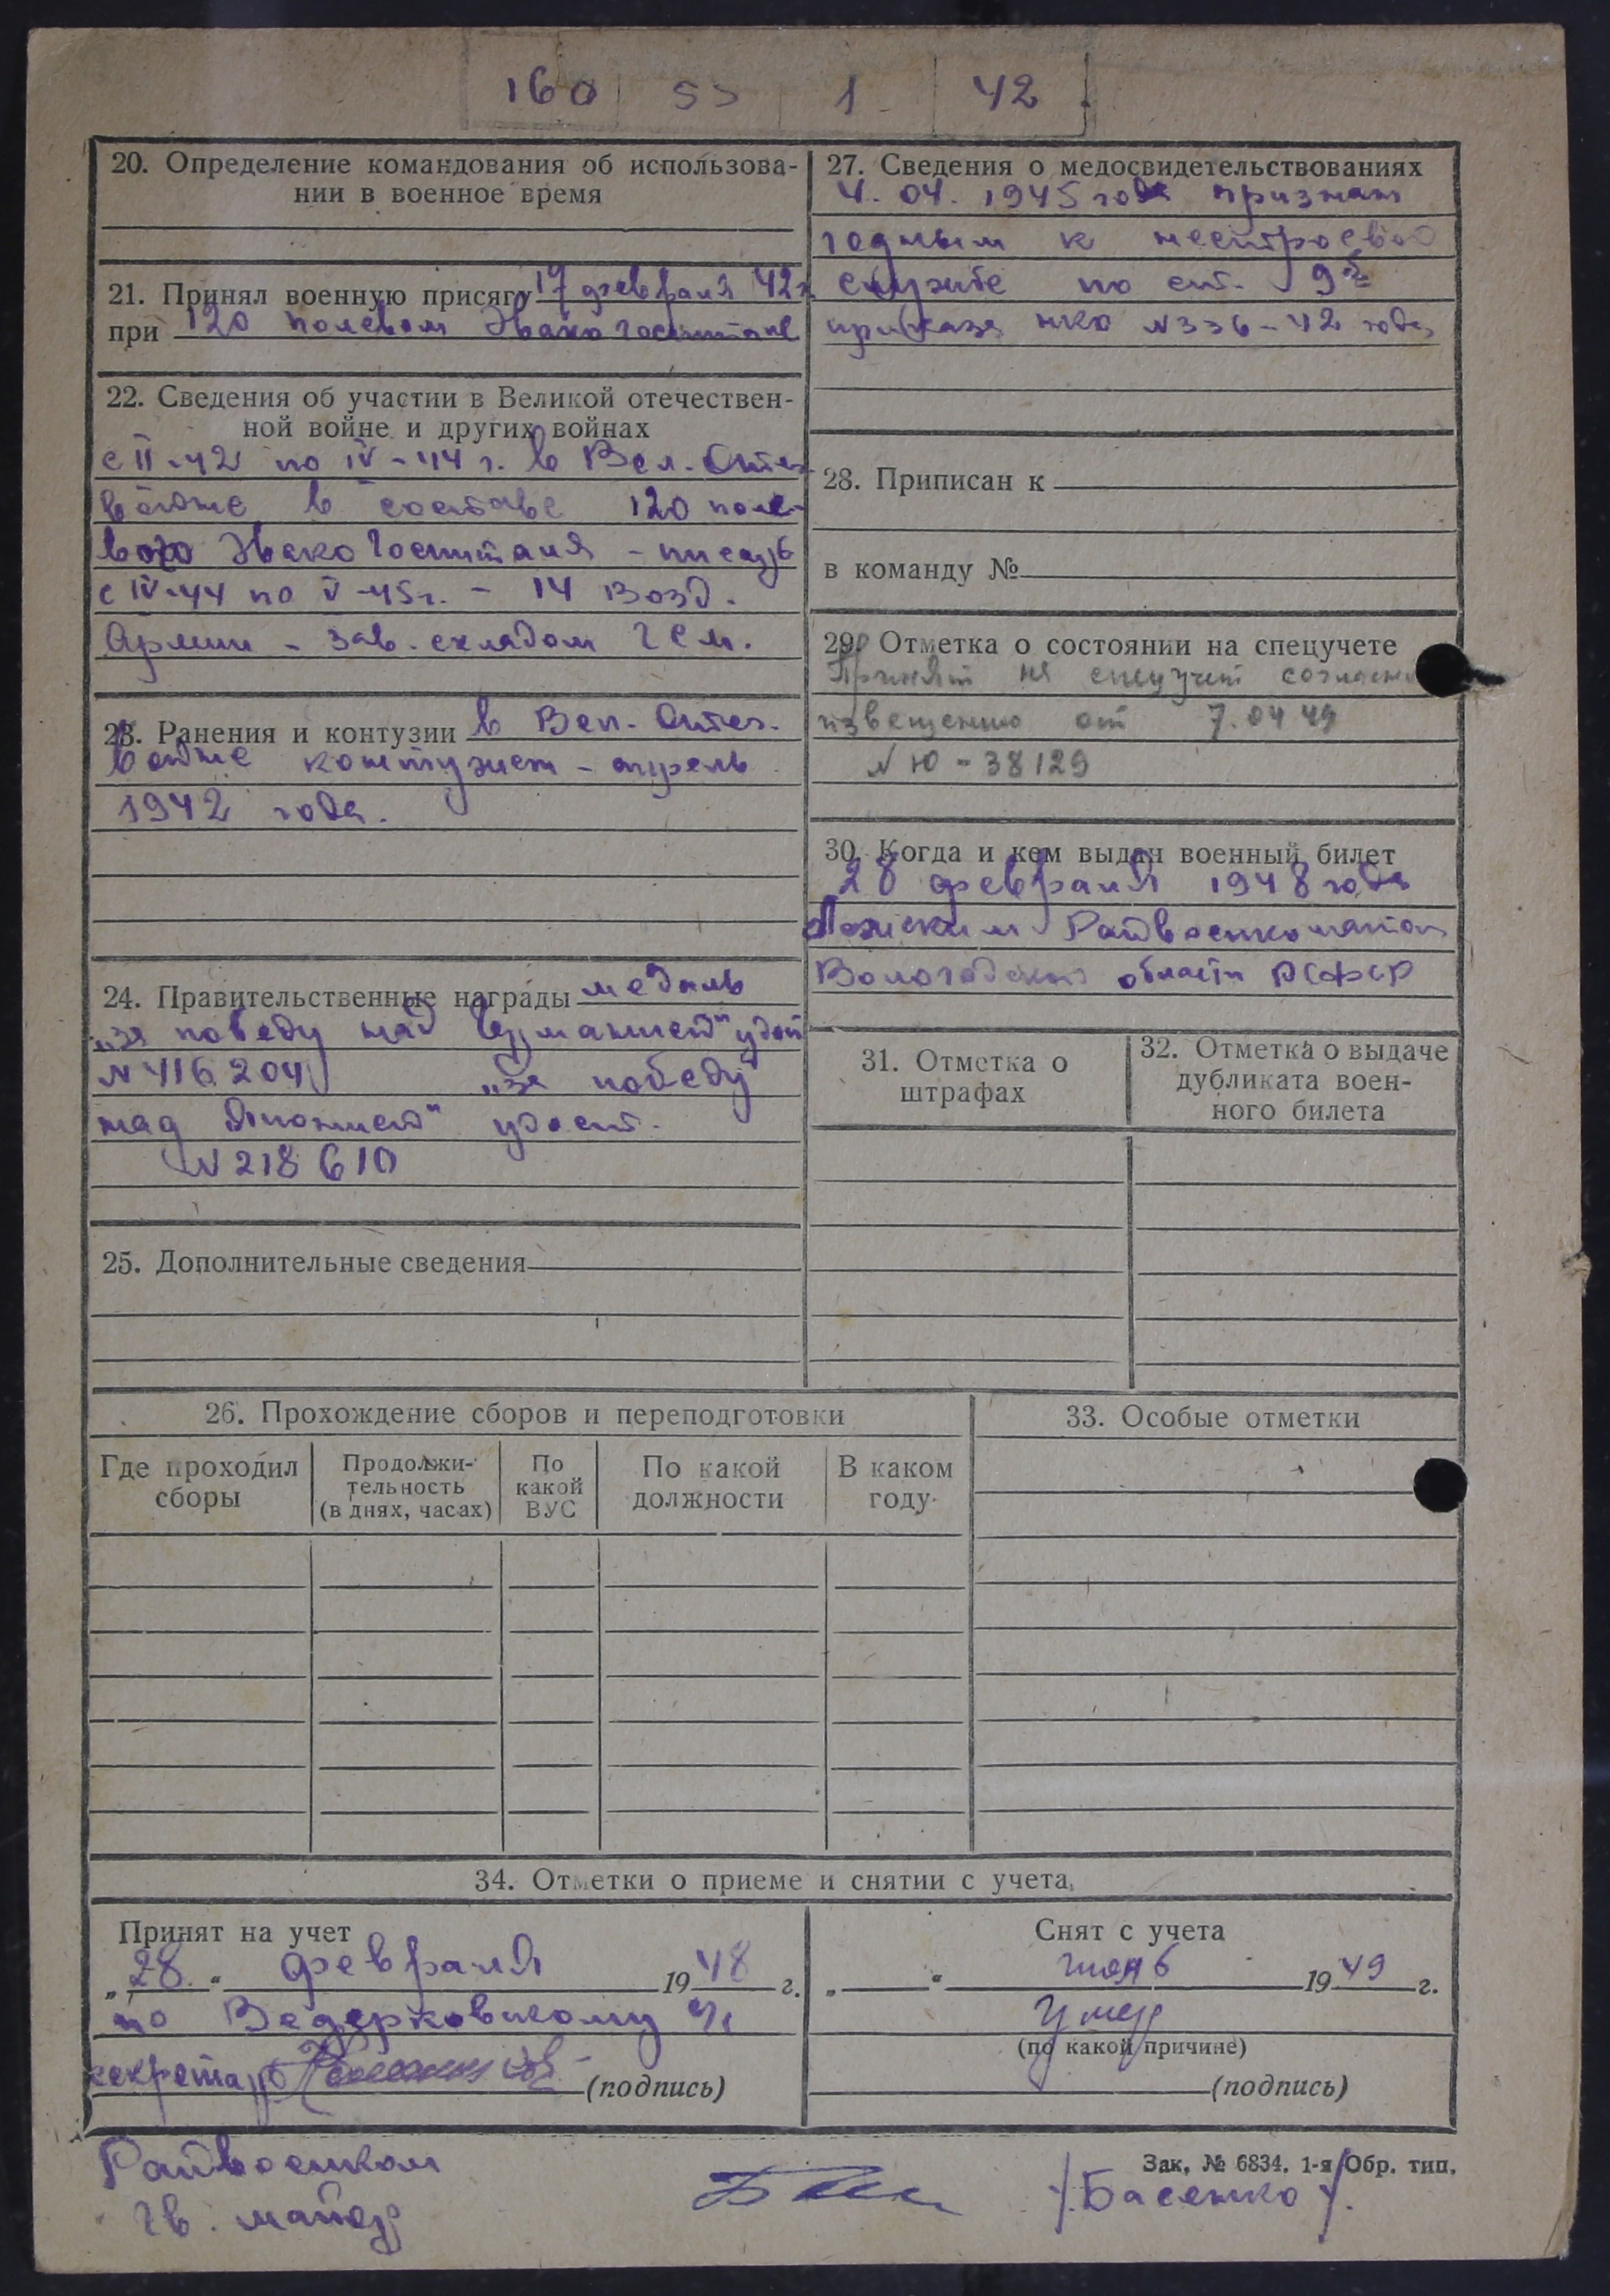 160 55 1 42
20. Определение командования об использова-
нии в военное время
21. Принял военную присягу 17 февраля 42г
при 120 полевом Эвакогоспитале
22. Сведения об участии в Великой отечествен-
ной войне и других войнах
с II-42 по IV-44 г. в Вел. Отеч.
войне в составе 120 поле-
вого Эвакогоспиталя - писарь
с IV-44 по V-45г. - 14 Возд.
Армии - зав. складом ГСМ.
23. Ранения и контузии в Вел. Отеч.
войне контужен - апрель
1942 года.
24. Правительственные награды медаль
„за победу над Германией" удост
N 416204 „за победу
над Японией" удост.
N 218610
25. Дополнительные сведения
27. Сведения о медосвидетельствованиях
4. 04. 1945 года признан
годным к нестроевой
службе по ст. 9б
приказа НКО N 336-42 года
28. Приписан к
в команду №
29. Отметка о состоянии на спецучете
Принят на спецучет согласно
извещению от 7.04 49
N Ю-38129
30. Когда и кем выдан военный билет
28 февраля 1948 года
Райвоенкоматом
Вологодской области РСФСР
31. Отметка о
штрафах
32. Отметка о выдаче
дубликата воен-
ного билета
26. Прохождение сборов и переподготовки
Где проходил
сборы
Продолжи-
тельность
(в днях, часах)
По
какой
ВУС
По какой
должности
В каком
году
33. Особые отметки
34. Отметки о приеме и снятии с учета
Принят на учет
„28" февраля 1948 г.
по Ведерковскому с/с
секретарь
(подпись)
Снят с учета
„ " 1949 г.
Умер
(по какой причине)
(подпись)
Райвоенком
гв. майор
/Басенко/.
Зак. № 6834. 1-я Обр. тип.